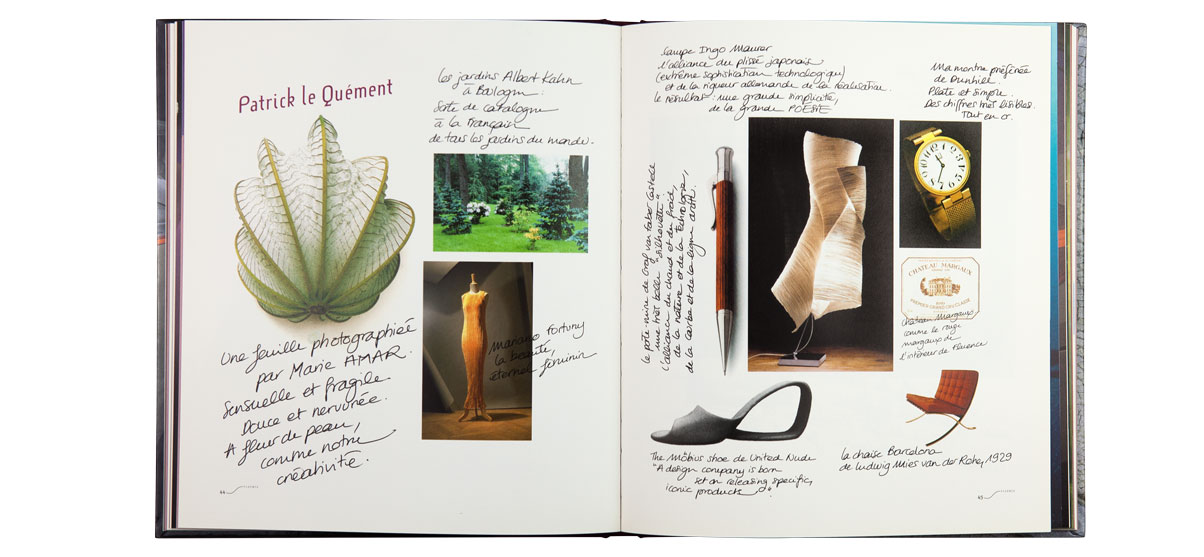 Patrick le Quément
les jardins Albert Kahn
à Bologne :
Sorte de catalogue
à la française
de tous les jardins du monde.
Mariano Fortuny
la beauté,
éternel féminin
Une feuille photographiée
par Marie AMAR.
Sensuelle et fragile
Douce et nervurée.
A fleur de peau,
comme notre
créativité.
44
lampe Ingo Maurer
l'alliance du plissé japonais
(extrême sophistication technologique)
et de la rigueur allemande de la réalisation.
le résultat : une grande simplicité,
de la grande POÉSIE
Ma montre préférée
de Dunhill.
Plate et simple.
Des chiffres très lisibles.
Tout en or.
le porte mine de Graf von Faber Castell
une très belle "silhouette"
l'alliance du chaud et du froid,
de la nature et de la technologie,
de la courbe et de la ligne droite.
CHATEAU MARGAUX
PREMIER GRAND CRU CLASSÉ
château Margaux
comme le rouge
margaux de
l'intérieur de Fluence
The Möbius shoe de United Nude
"A design company is born
set on releasing specific,
iconic products".
la chaise Barcelona
de Ludwig Mies van der Rohe, 1929
45